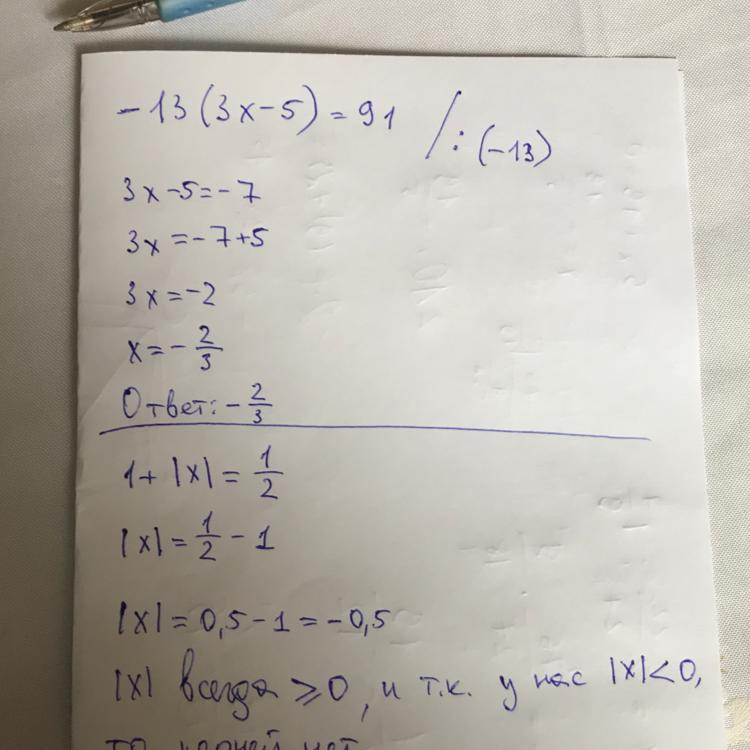 -13(3x-5)=91 /:(-13)
3x-5=-7
3x=-7+5
3x=-2
x=-2/3
Ответ: -2/3
1+|x|=1/2
|x|=1/2-1
|x|=0,5-1=-0,5
|x| всегда ≥0, и т.к. у нас |x|<0,
то корней нет